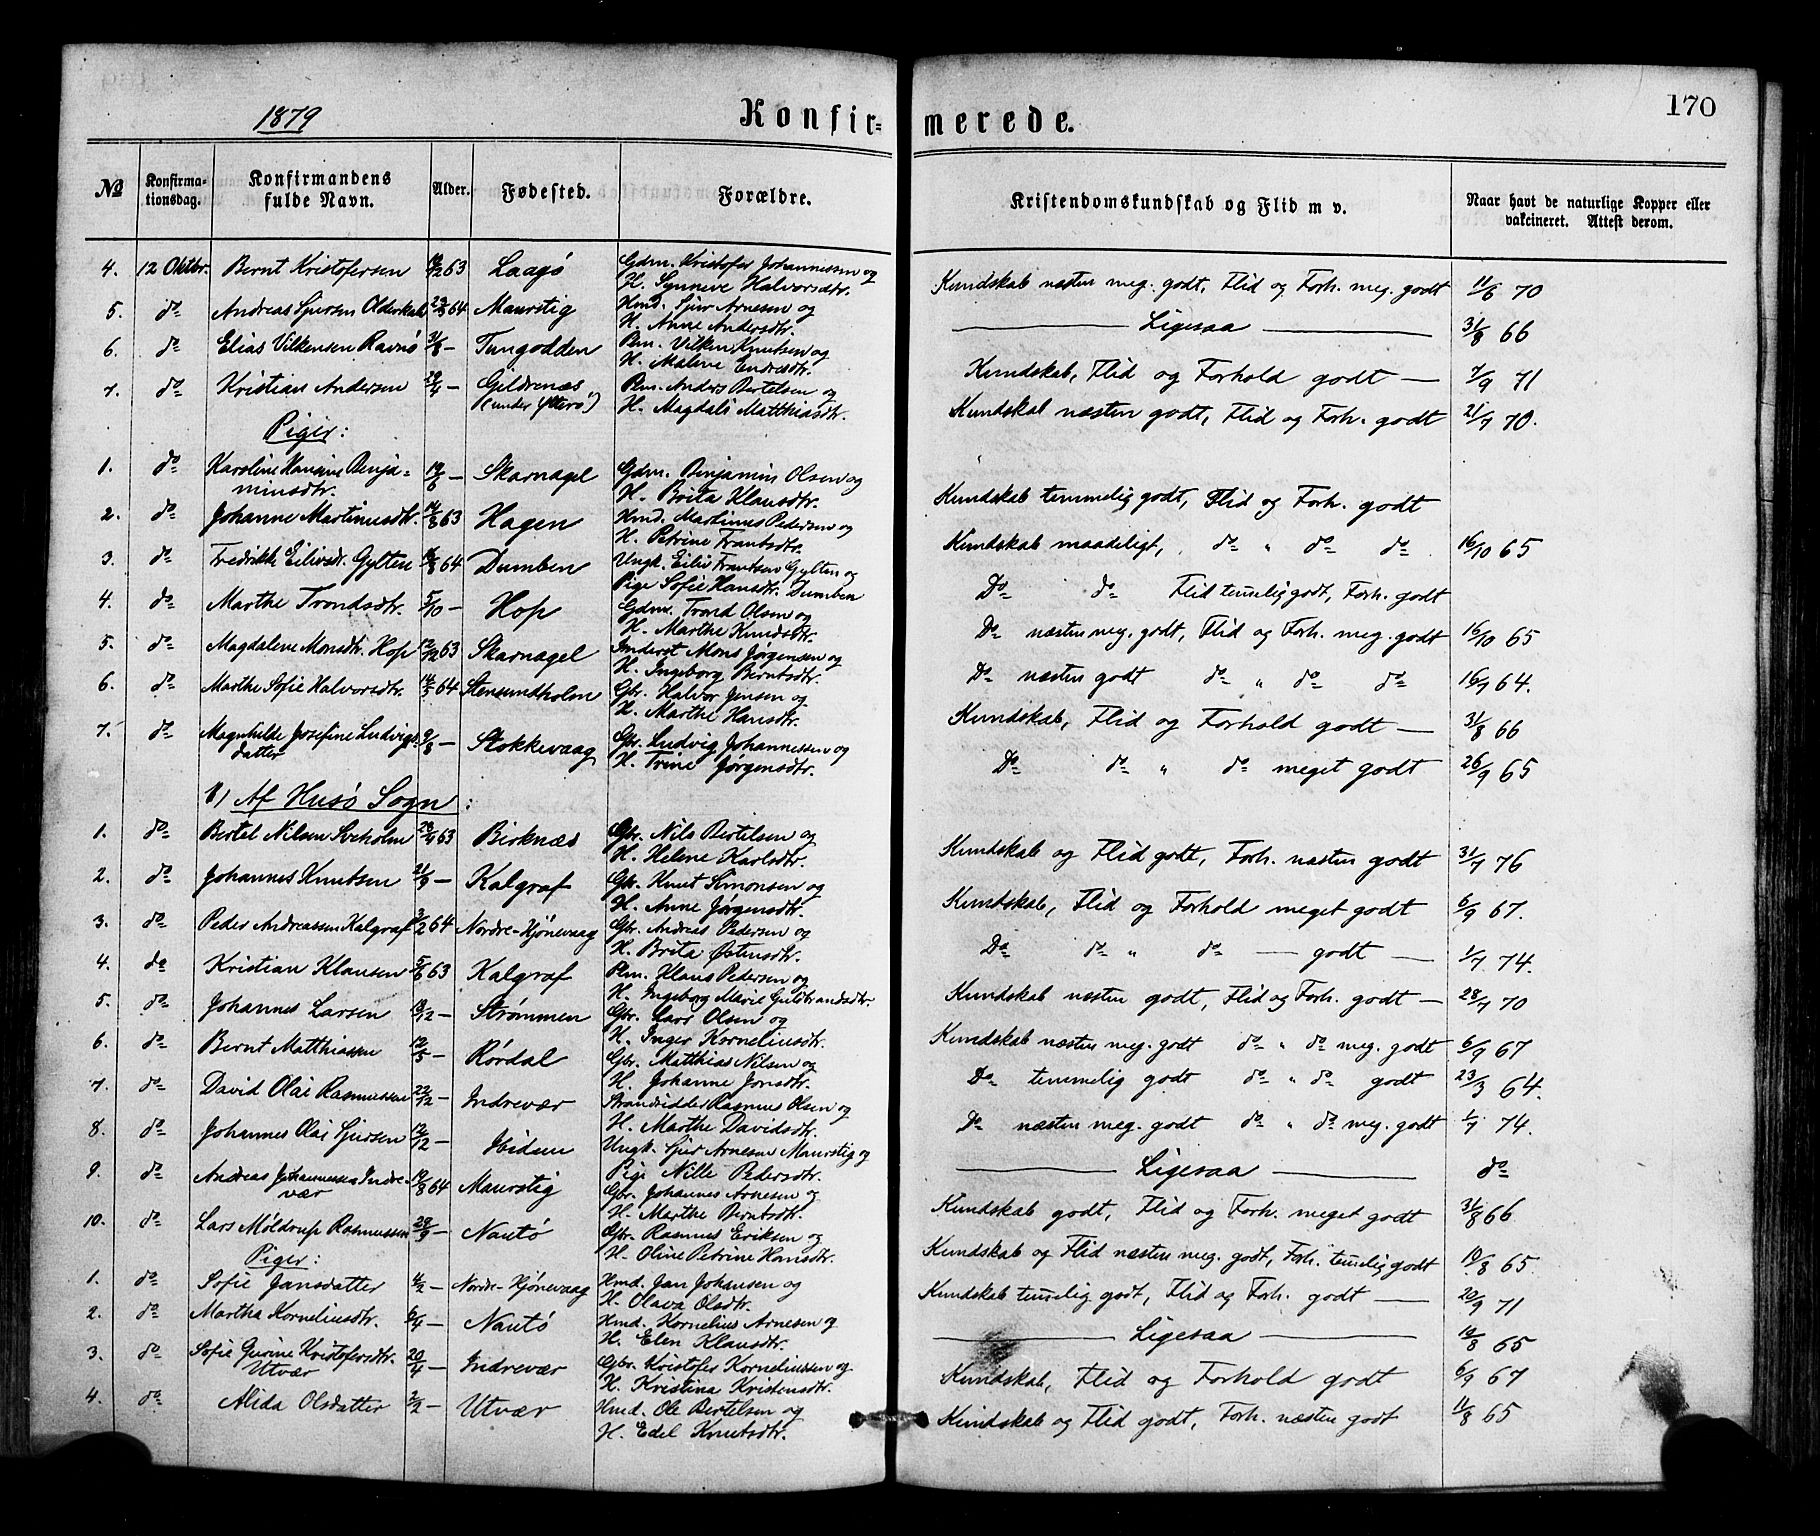 1879
Konfir-
merede.
170
No
Konfirma-
tionsdag.
Konfirmandens
fulde Navn.
Alder.
Fødested.
Forældre.
Kristendomskundskab og Flid m v.
Naar havt de naturlige Kopper eller
vakcineret. Attest derom.
4. 12 Oktbr. Bernt Kristofersen 63 Laagø Gdm. Kristofer Johannessen og
H. Synneve Halvorsdtr. Kundskab næsten meg. godt, Flid og Forh. meg. godt 11/6 70
5. do Andreas Sjursen 64 Maurstig Hmd. Sjur Arnesen og
H. Anne Andersdtr. Ligesaa 31/8 66
6. do Elias Vilkensen Ravnø 31/8 — Tungodden Pm. Vilken Knutsen og
H. Malene Endresdtr. Kundskab, Flid og Forhold godt — 7/9 71
7. do Kristian Andersen 29/4 — Gildrenæs
(under Ytterø) Pm. Anders Bertelsen og
H. Magdali Matthiasdtr. Kundskab næsten godt, Flid og Forh. godt 21/7 70.
Piger:
1. do Karoline Hansine Benja-
minsdtr. 19/6 — Skarnagel Gdm. Benjamin Olsen og
H. Brita Klausdtr. Kundskab temmelig godt, Flid og Forh. godt
2. do Johanne Martinusdtr. 63 Hagen Hmd. Martinus Pedersen og
H. Petrine Frantsdtr. Kundskab maadeligt, do " do do 16/10 65
3. do Fredrikke Eilivsdt. Gylten 64 Dumben Ungk. Eiliv Frantsen Gylten og
Pige Sofie Hansdtr. Dumben Do do Flid temelig godt, Forh. godt
4. do Marthe Trondsdtr. 5/10 — Hop Gdm. Trond Olsen og
H. Marthe Knudsdtr. Do næsten meg. godt, Flid og Forh. meg. godt 16/10 65
5. do Magdalene Monsdtr. Hop 12/12 63 Skarnagel Inderst Mons Jørgensen og
H. Ingeborg Berntsdtr. Do næsten godt do " do do 16/7 64.
6. do Marthe Sofie Halvorsdtr. 14/5 64 Stensundholm Gbr. Halvor Jensen og
H. Marthe Hansdtr. Kundskab, Flid og Forhold godt — 31/8 66
7. do Magnhilde Josefine Ludvigs-
datter 9/8 — Stokkevaag Gbr. Ludvig Johannessen og
H. Trine Jørgensdtr. Do do " do meget godt 26/9 65
Af Husø Sogn:
1. do Bertel Nilsen Sveholm 28/9 63 Birknæs Gbr. Nils Bertelsen og
H. Helene Karlsdtr. Kundskab og Flid godt, Forh. næsten godt 31/7 76
2. do Johannes Knutsen 21/9 — Kalgraf Gbr. Knut Simonsen og
H. Anne Jørgensdtr. Kundskab, Flid og Forhold meget godt 6/9 67.
3. do Peder Andreassen Kalgraf 3/2 64 Nordre-Hjønevaag Gbr. Andreas Pedersen og
H. Brita Østensdtr. Do do " do — godt — 1/7 74.
4. do Kristian Klausen 5/6 63 Kalgraf Pm. Klaus Pedersen og
H. Ingeborg Marie Gulbrandsdtr. Kundskab næsten godt, Flid og Forh. godt — 28/7 70
5. do Johannes Larsen 18/12 — Strømmen Gbr. Lars Olsen og
H. Inger Korneliusdtr. Kundskab næsten meg. godt do " do meg. godt 6/9 67
6. do Bernt Matthiassen 12/5 — Rørdal Gbr. Matthias Nilsen og
H. Johanne Jonsdtr. Do temmelig godt do " do godt 23/3 64.
7. do David Olai Rasmussen 22/12 — Indrevær Strandsidder Rasmus Olsen og
H. Marthe Davidsdtr. Do næsten meg. godt do " do meg. godt 1/7 74.
8. do Johannes Olai Sjursen 12/12 — Ibidem Ungk. Sjur Arnesen Maurstig og
Pige Nille Pedersdtr. Ligesaa do
9. do Andreas Johannessen Indre-
vær 64 Maurstig Gbr. Johannes Arnesen og
H. Marthe Berntsdtr. Kundskab godt, Flid og Forh. meget godt 31/8 66
10. do Lars Møldrup Rasmussen 28/9 — Nautø Gbr. Rasmus Eriksen og
H. Oline Petrine Hansdtr. Kundskab og Flid næsten meg. godt, Forh. temelig godt 10/8 65.
Piger:
1. do Sofie Jansdatter 4/2 — Nordre-Hjønevaag Hmd. Jan Johansen og
H. Olava Olsdtr. Kundskab temelig godt, Flid og Forh. godt — 20/9 71
2. do Martha Korneliusdtr. 6/4 — Nautø Hmd. Kornelius Arnesen og
H. Elen Klausdtr. Ligesaa 10/8 65
3. do Sofie Gurine Kristofersdtr.
Utvær 20/4 — Indrevær Gbr. Kristofer Korneliussen og
H. Kristina Kristensdtr. Kundskab, Flid og Forhold godt 6/9 67
4. do Alida Olsdatter 2/2 — Utvær Hmd. Ole Bertelsen og
H. Edel Knutsdtr. Kundskab og Flid godt, Forh. næsten godt 11/8 65